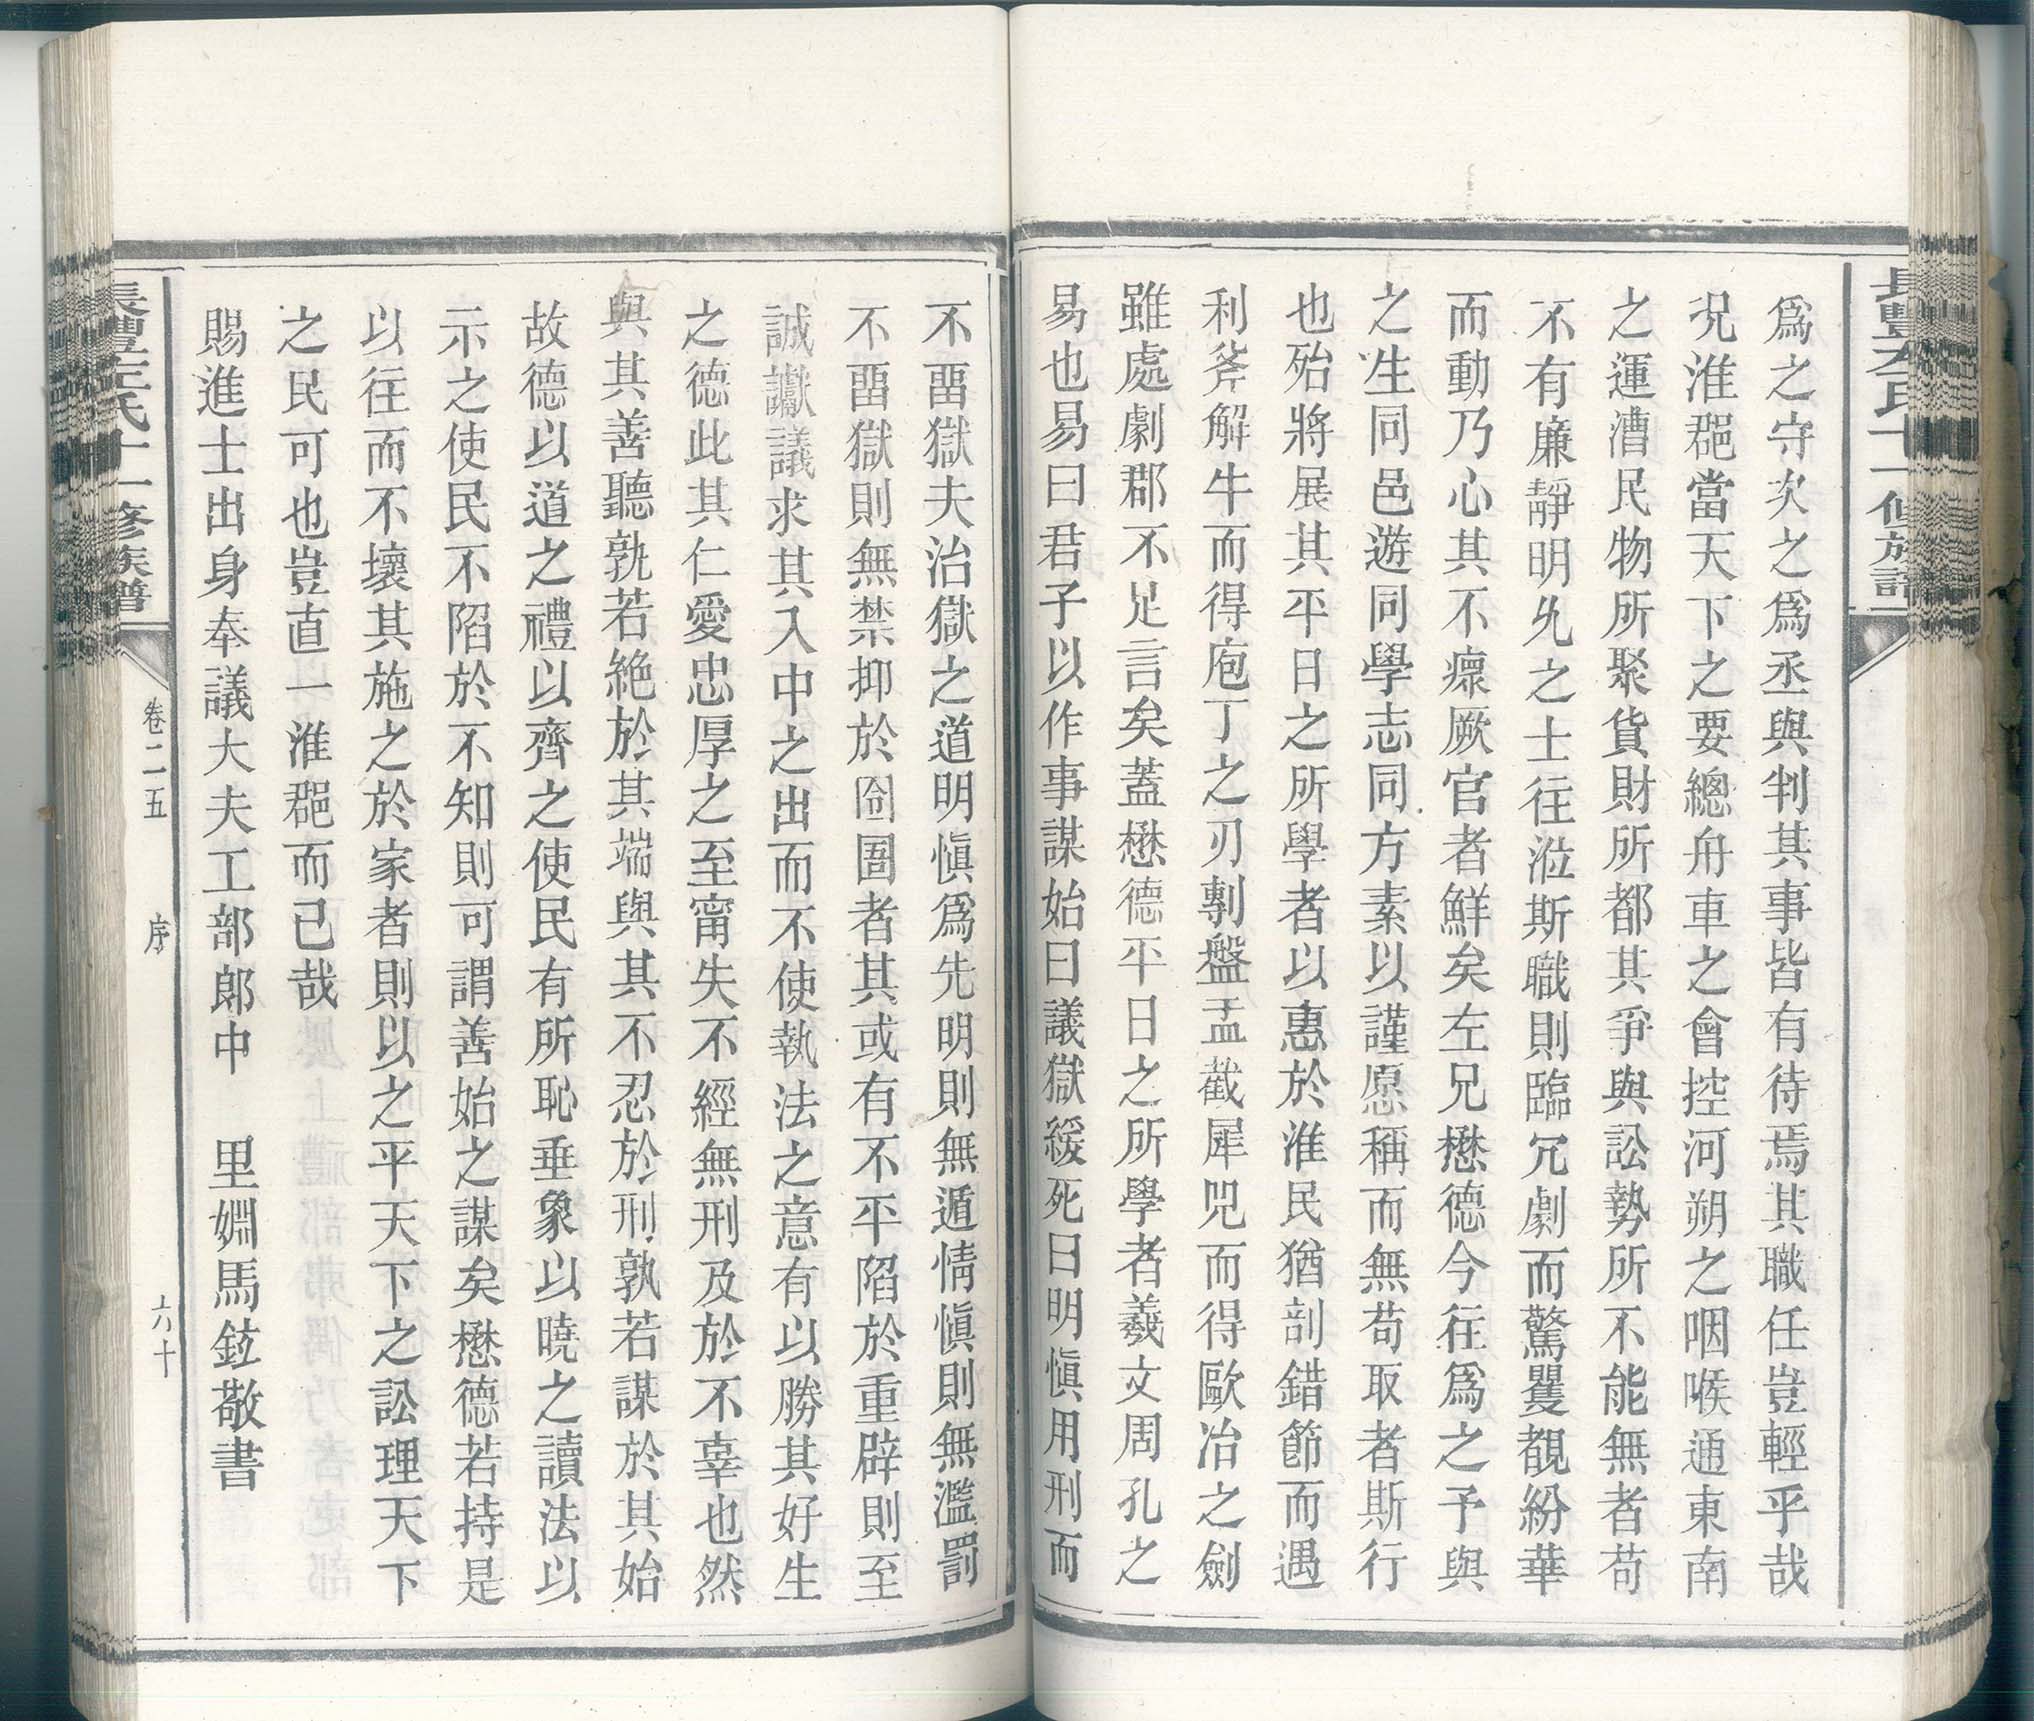 爲之守次之爲丞與判其事皆有待焉其職任豈輕乎哉
况淮郡當天下之要總舟車之會控河朔之咽喉通東南
之運漕民物所聚貨財所都其爭與訟勢所不能無者苟
不有廉靜明允之士往涖斯職則臨冗劇而驚瞿覩紛華
而動乃心其不瘝厥官者鮮矣左兄懋德今往爲之予與
之生同邑遊同學志同方素以謹愿稱而無苟取者斯行
也殆將展其平日之所學者以惠於淮民猶剖錯節而遇
利斧解牛而得庖丁之刃剸盤盂截犀兕而得歐冶之劍
雖處劇郡不足言矣蓋懋德平日之所學者羲文周孔之
易也易曰君子以作事謀始曰議獄緩死曰明愼用刑而
不畱獄夫治獄之道明愼爲先明則無遁情愼則無濫罰
不畱獄則無禁抑於囹圄者其或有不平陷於重辟則至
誠讞議求其入中之出而不使執法之意有以勝其好生
之德此其仁愛忠厚之至甯失不經無刑及於不辜也然
與其善聽孰若絶於其端與其不忍於刑孰若謀於其始
故德以道之禮以齊之使民有所恥垂象以曉之讀法以
示之使民不陷於不知則可謂善始之謀矣懋德若持是
以往而不壞其施之於家者則以之平天下之訟理天下
之民可也豈直一淮郡而已哉
賜進士出身奉議大夫工部郎中　里婣馬鉝敬書
長豐左氏十一修族譜
卷二五　序　六十